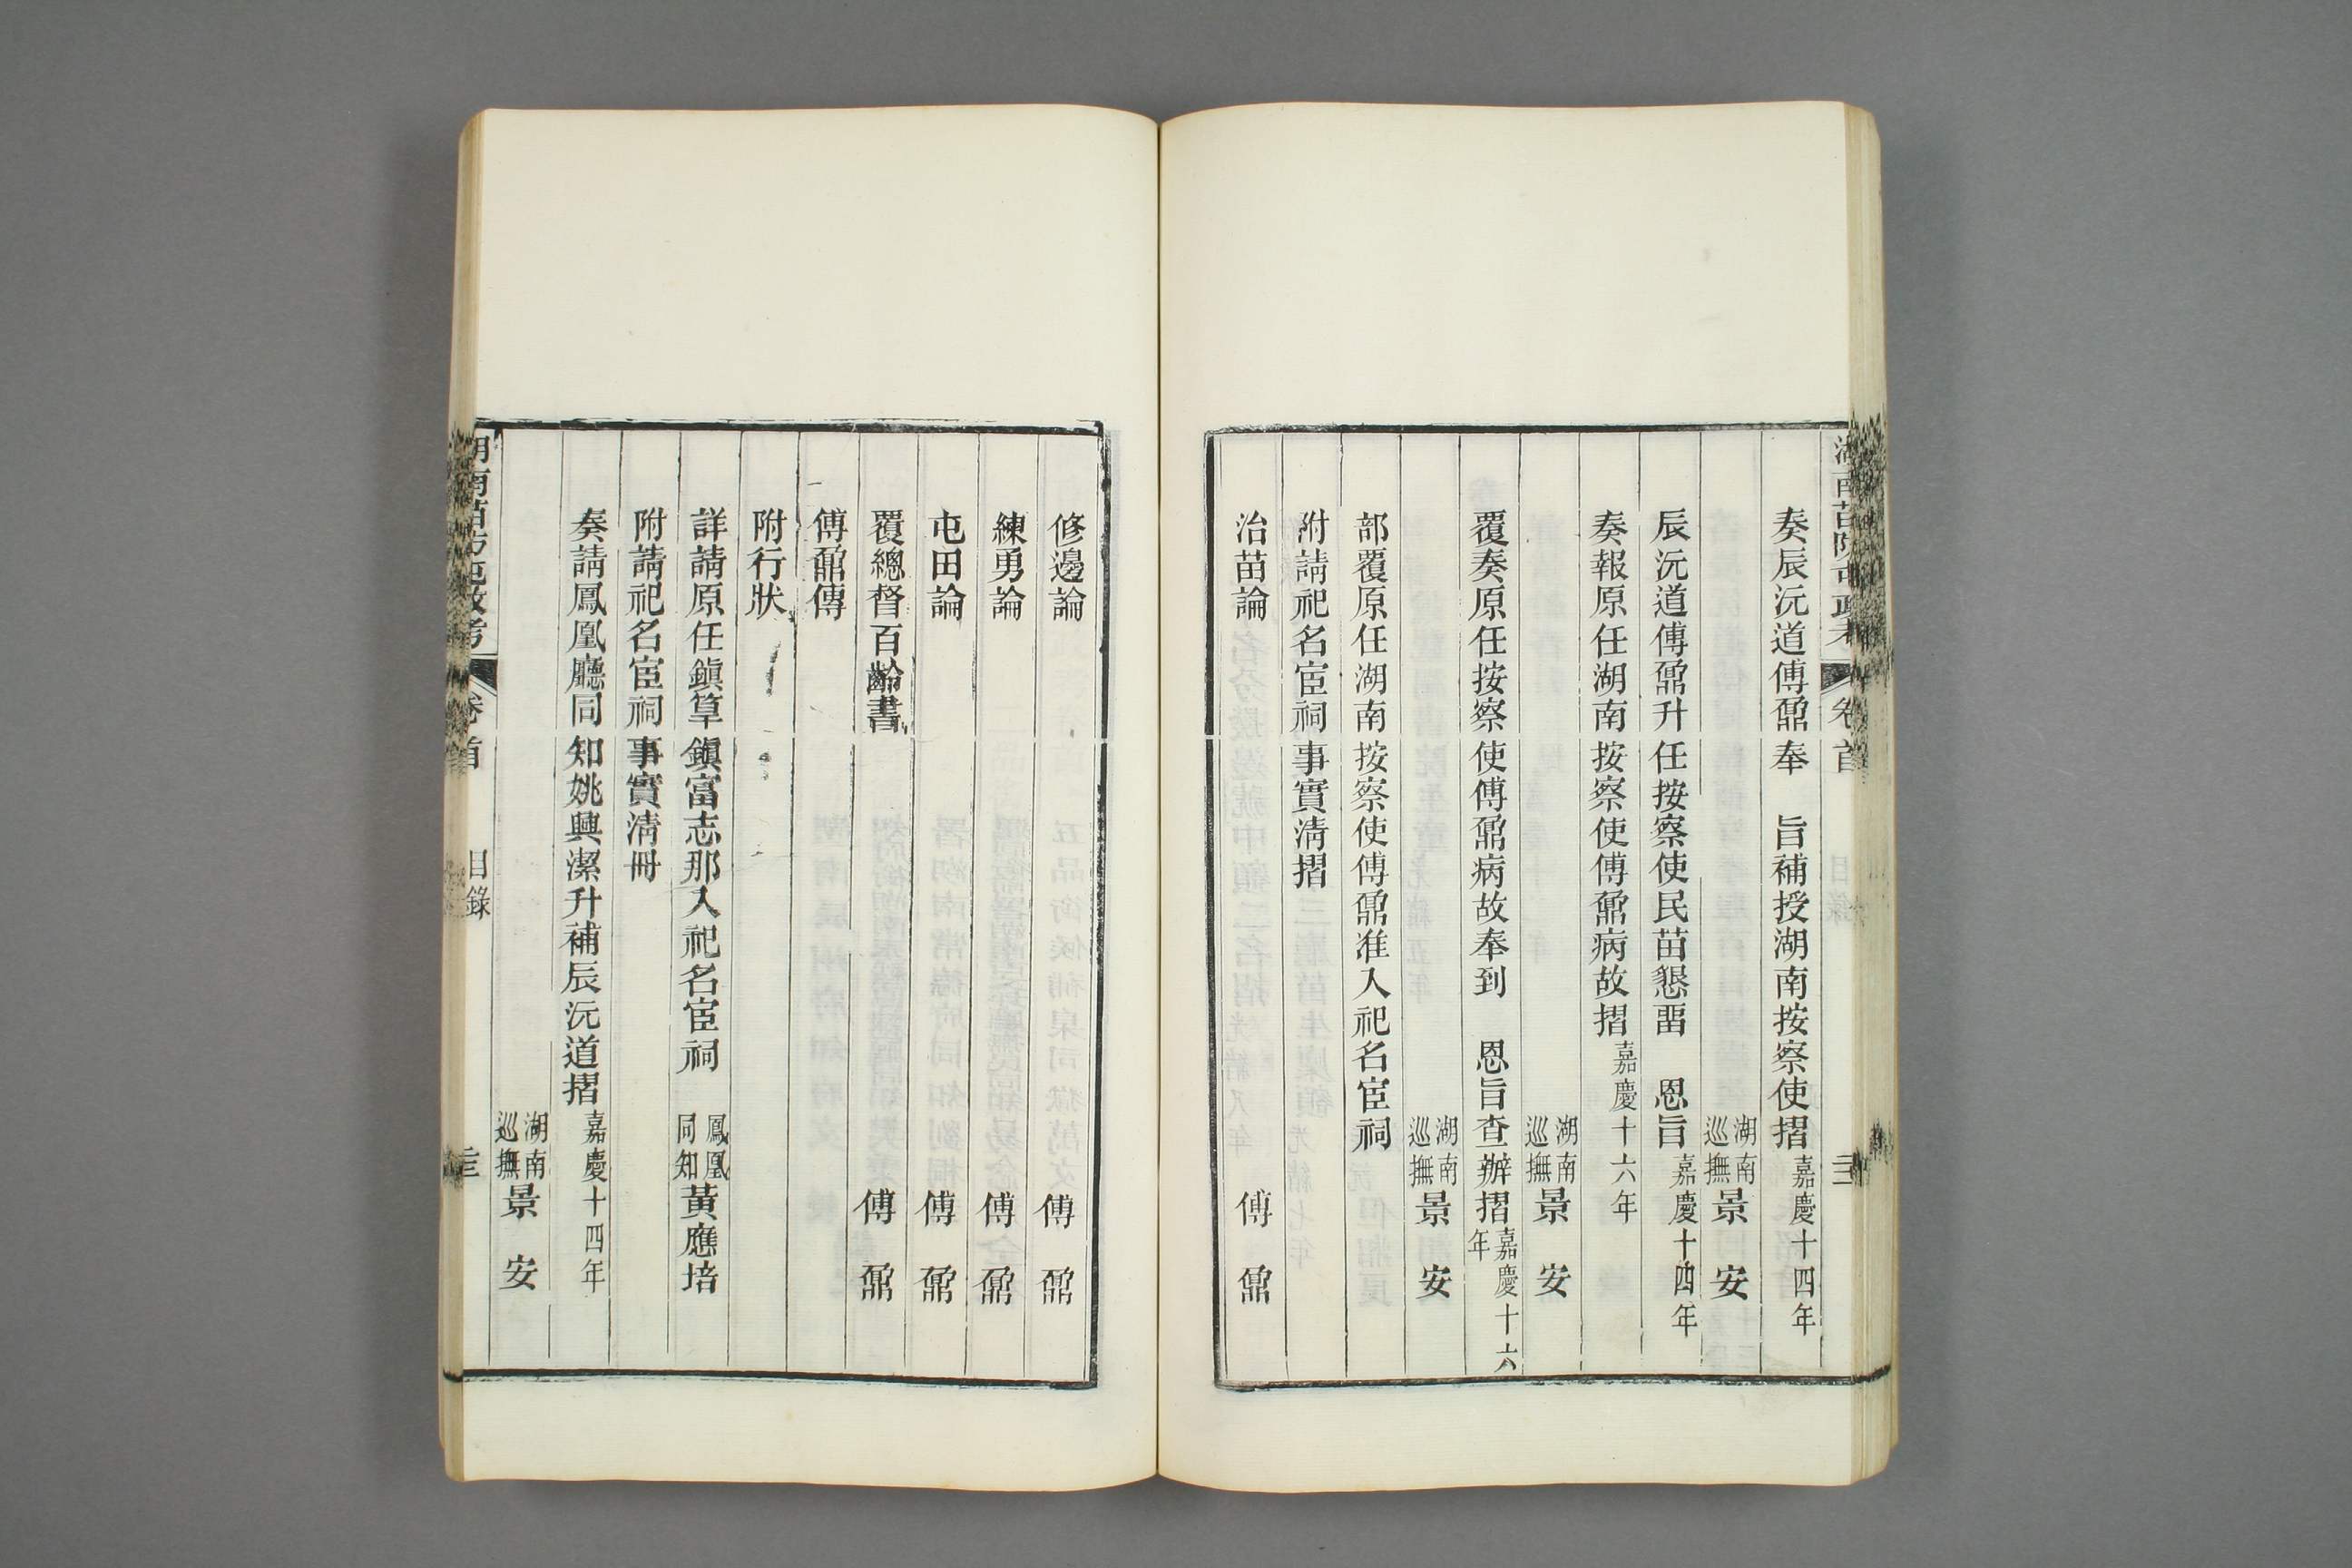 湖南苗防屯政考 卷首 目錄
奏辰沅道傅鼐奉 旨補授湖南按察使摺嘉慶十四年
湖南巡撫景 安
辰沅道傅鼐升任按察使民苗懇畱 恩旨嘉慶十四年
奏報原任湖南按察使傅鼐病故摺嘉慶十六年
湖南巡撫景 安
覆奏原任按察使傅鼐病故奉到 恩旨查辦摺嘉慶十六年
湖南巡撫景 安
部覆原任湖南按察使傅鼐准入祀名宦祠
附請祀名宦祠事實淸摺
治苗論 傅 鼐
修邊論 傅 鼐
練勇論 傅 鼐
屯田論 傅 鼐
覆總督百齡書 傅 鼐
傅鼐傳
附行狀
詳請原任鎭筸鎭富志那入祀名宦祠 鳳凰同知黃應培
附請祀名宦祠事實淸冊
奏請鳳凰廳同知姚興潔升補辰沅道摺嘉慶十四年
湖南巡撫景 安
湖南苗防屯政考 卷首 目錄